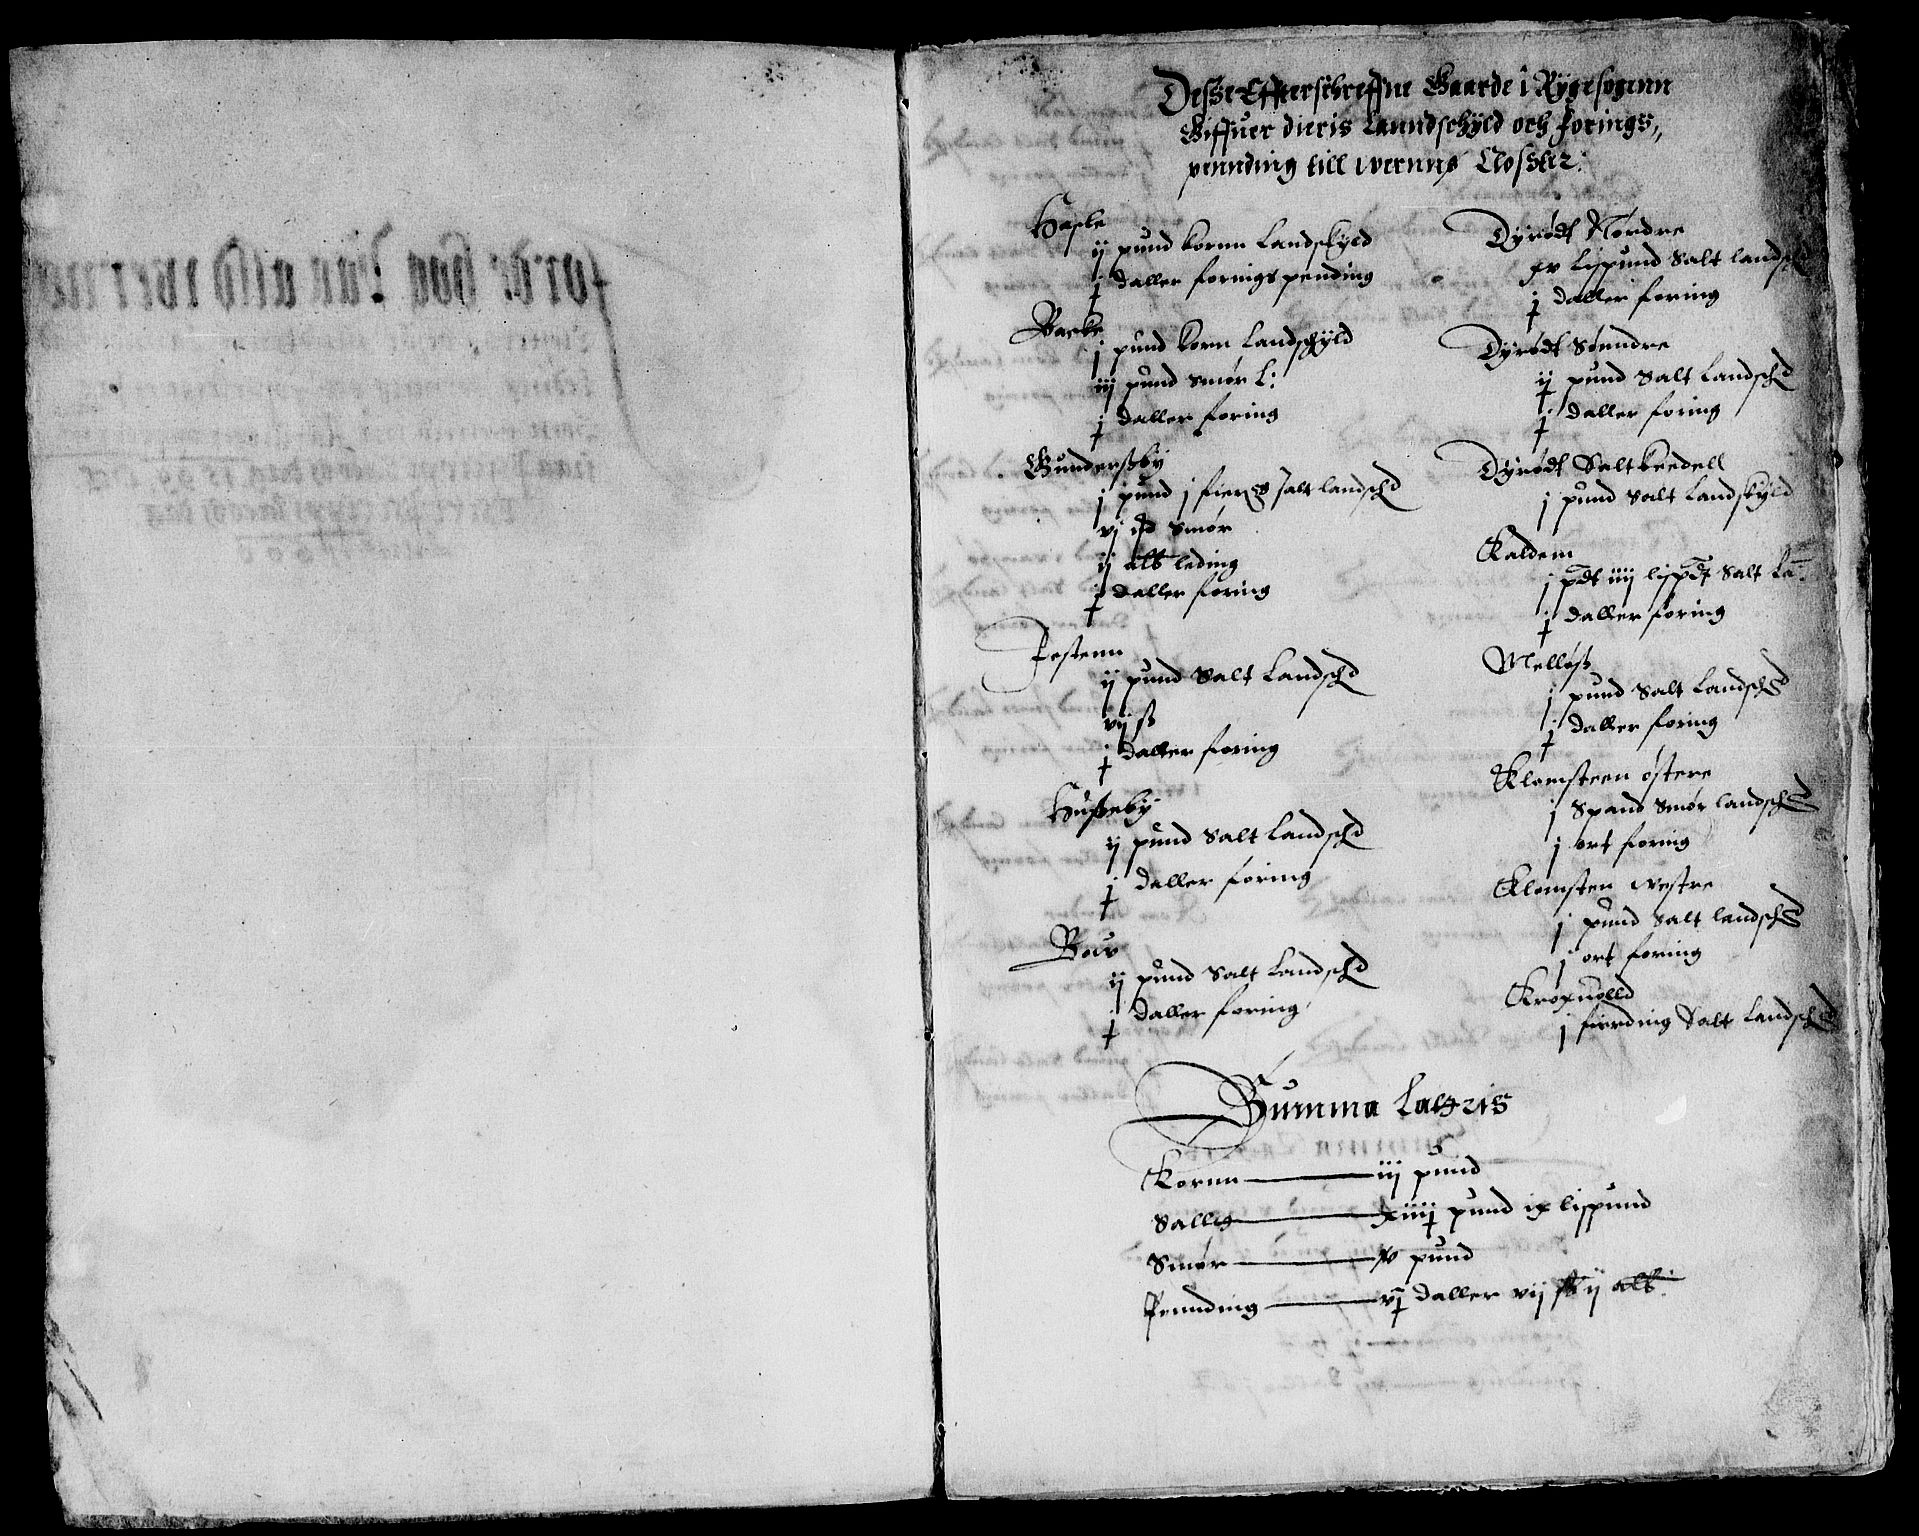 Desse Effterschreffne Gaarde i Rygesogenn
Giffuer dieris Lanndschyld och forings,,
pennding till wernns Closter.
Hasle
ij pund kornn Landskyld
j daller foringspending
Backe
j pund korn Landschyld
iij pund smør L:
j daller foring
Gundersby
j pund j fier salt landschd
vj smør
ij alb leding
j daller foring
Jestenn
ij pund Salt Landschd
vij ß
j daller foring
Husebÿ
ij pund Salt Landschd
j daller foring
Bow
ij pund Salt Landschd
j daller foring
Dyrødt Nørdre
xv Lispund Salt landsch
j daller foring
Dyrødt Sønndre
ij pund Salt Landschd
j daller foring
Dyrødt Saltkeedell
j pund Salt Landskyld
Kaldem
j pdt iiij lispdt Salt La:
j daller foring
Melløß
j pund Salt Landschd
j daller foring
Klomsteen østere
j Spand Smør landschd
j ort foring
Klomsten westre
j pund Salt landschd
j ort foring
Kroxuolld
j fierding Salt Landschd
Summa Lateris
Kornn iij pund
Sallt xiiij pund ix lispund
Smør v pund
Pennding vj daller vij ß ij alb: